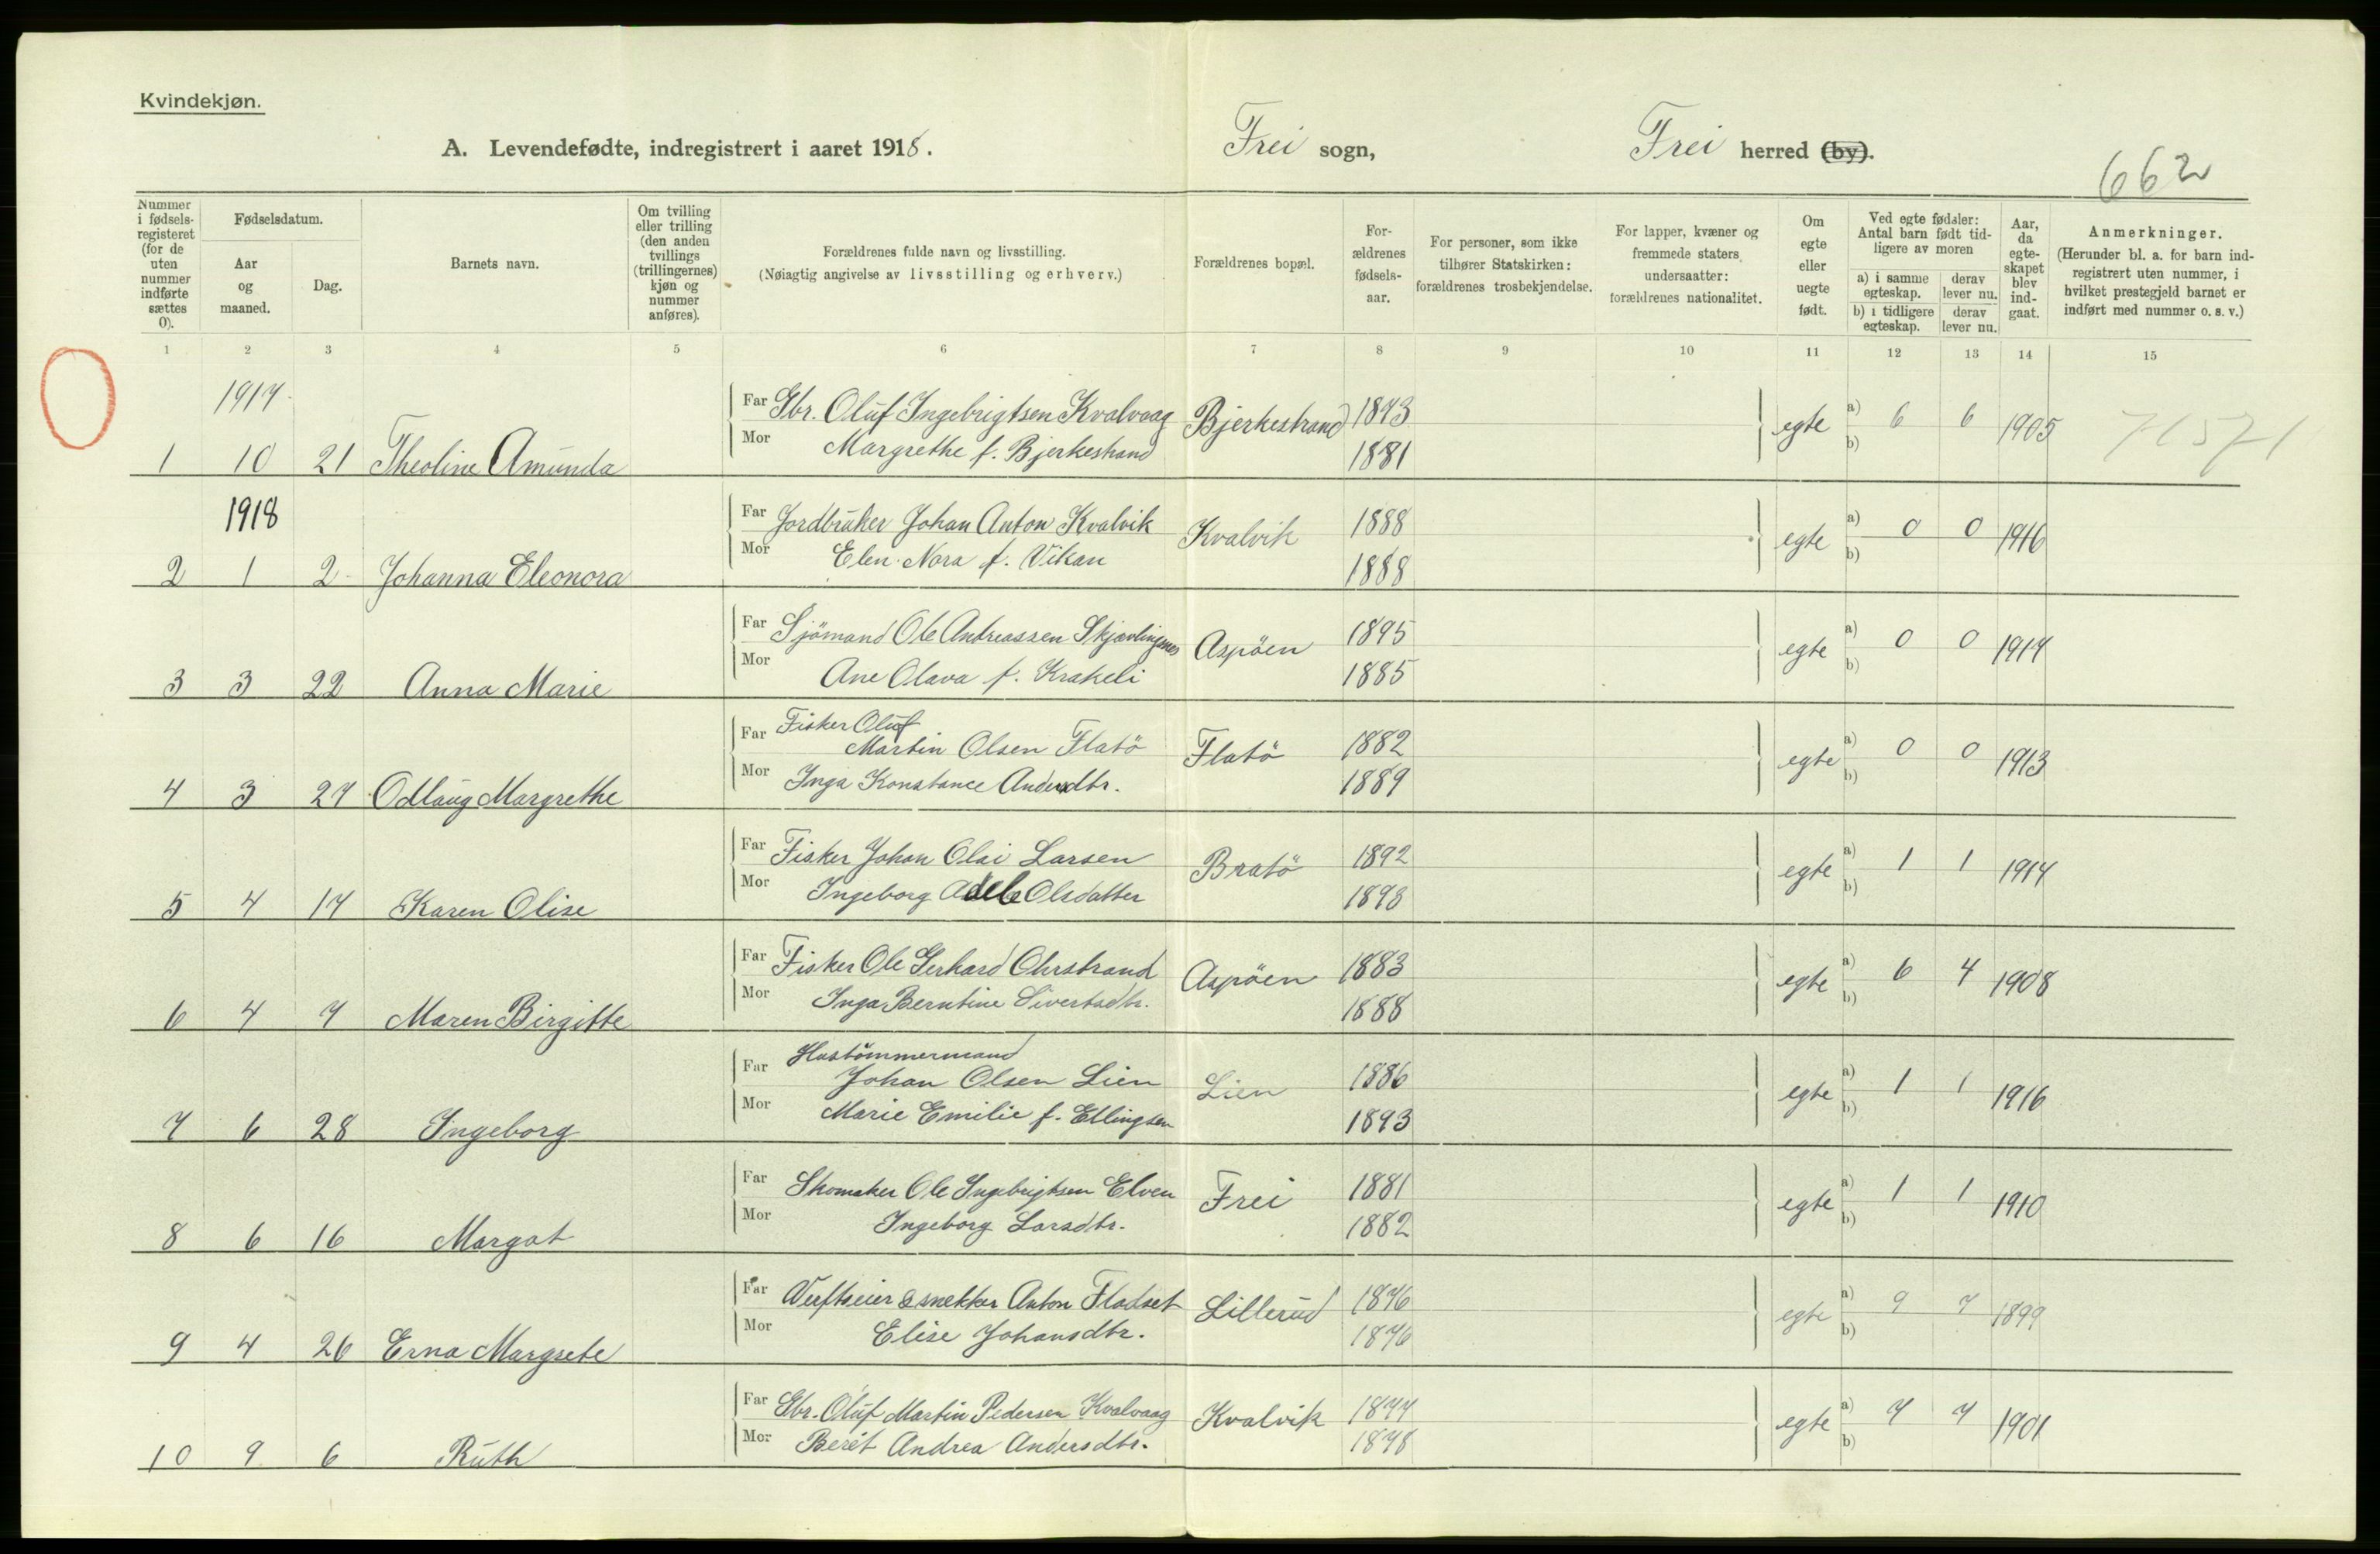 Kvindekjøn.
A. Levendefødte, indregistrert i aaret 1918. Frei sogn, Frei herred (by).
662
Nummer i fødselsregisteret (for de uten nummer indførte sættes 0).
Fødselsdatum.
Aar og maaned.
Dag.
Barnets navn.
Om tvilling eller trilling (den anden tvillings (trillingernes) kjøn og nummer anføres).
Forældrenes fulde navn og livsstilling.
(Nøiagtig angivelse av livsstilling og erhverv.)
Forældrenes bopæl.
Forældrenes fødselsaar.
For personer, som ikke tilhører Statskirken: forældrenes trosbekjendelse.
For lapper, kvæner og fremmede staters undersaatter: forældrenes nationalitet.
Om egte eller uegte født.
Ved egte fødsler: Antal barn født tidligere av moren
a) i samme egteskap. derav lever nu.
b) i tidligere egteskap. derav lever nu.
Aar, da egteskapet blev indgaat.
Anmerkninger.
(Herunder bl. a. for barn indregistrert uten nummer, i hvilket prestegjeld barnet er indført med nummer o. s. v.)
1 2 3 4 5 6 7 8 9 10 11 12 13 14 15
1917
Far Gbr. Oluf Ingebrigtsen Kvalvaag Bjerkestrand 1873 egte a) 6 6 1905
Mor Margrethe f. Bjerkestrand 1881 b)
1 10 21 Theoline Amunda
1918
Far Jordbruker Johan Anton Kvalvik Kvalvik 1888 egte a) 0 0 1916
Mor Elen Nora f. Vikan 1888 b)
2 1 2 Johanna Eleonora
Far Sjömand Ole Andreassen Skjærlingnes Aspöen 1895 egte a) 0 0 1917
Mor Ane Olava f. Krakeli 1885 b)
3 3 22 Anna Marie
Far Fisker Oluf
Martin Olsen Flatö Flatö 1882 egte a) 0 0 1913
Mor Inga Konstance Andersdtr. 1889 b)
4 3 27 Odlaug Margrethe
Far Fisker Johan Olai Larsen Bratö 1892 egte a) 1 1 1917
Mor Ingeborg Adele Olsdatter 1898 b)
5 4 17 Karen Olise
Far Fisker Ole Gerhard Ohrstrand Aspöen 1883 egte a) 6 4 1908
Mor Inga Berntine Sivertsdtr. 1888 b)
6 4 7 Maren Birgitte
Far Hustömmermand
Johan Olsen Lien Lien 1886 egte a) 1 1 1916
Mor Marie Emilie f. Ellingsen 1893 b)
7 6 28 Ingeborg
Far Skomaker Ole Ingebrigtsen Elven Frei 1881 egte a) 1 1 1910
Mor Ingeborg Larsdtr. 1882 b)
8 6 16 Margot
Far Verftseier & snekker Anton Flodset Lillerud 1876 egte a) 9 7 1899
Mor Elise Johansdtr. 1876 b)
9 4 26 Erna Margrete
Far Gbr. Oluf Martin Pedersen Kvalvaag Kvalvik 1877 egte a) 7 7 1901
Mor Berit Andrea Andersdtr. 1878 b)
10 9 6 Ruth